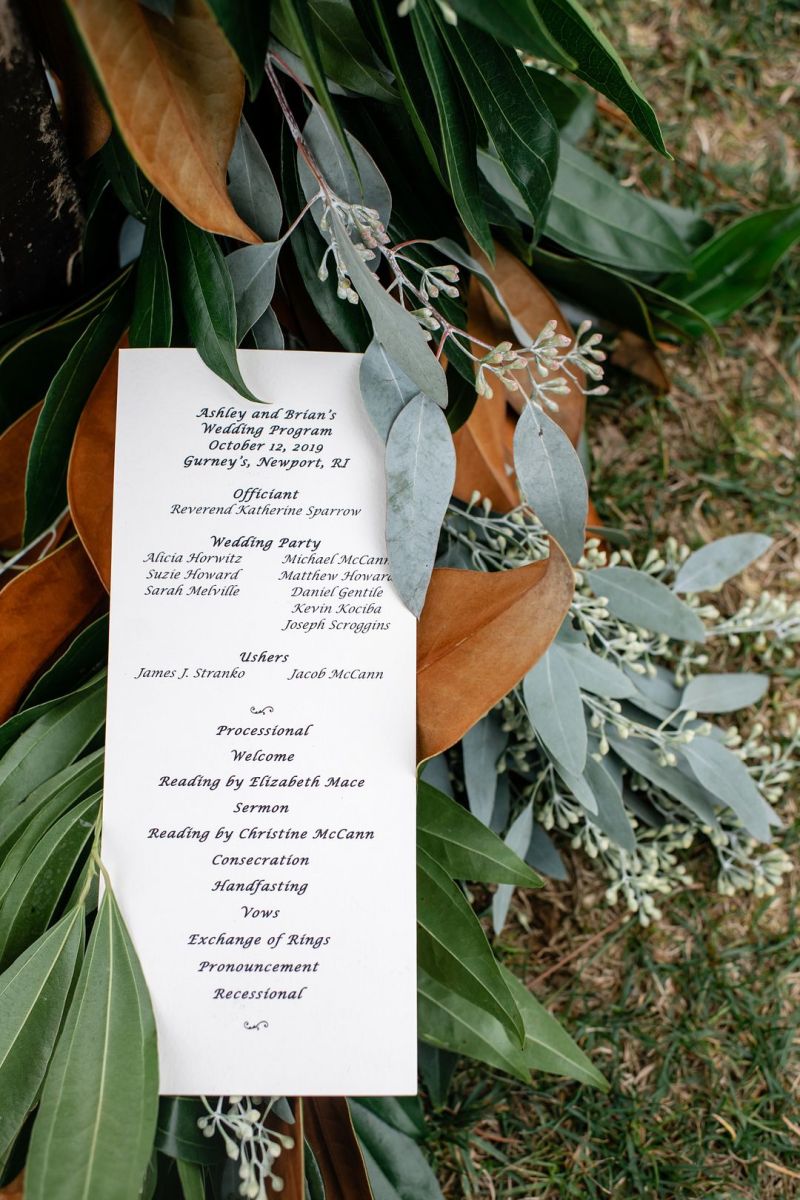 Ashley and Brian's
Wedding Program
October 12, 2019
Gurney's, Newport, RI
Officiant
Reverend Katherine Sparrow
Wedding Party
Alicia Horwitz Michael McCann
Suzie Howard Matthew Howard
Sarah Melville Daniel Gentile
Kevin Kociba
Joseph Scroggins
Ushers
James J. Stranko Jacob McCann
Processional
Welcome
Reading by Elizabeth Mace
Sermon
Reading by Christine McCann
Consecration
Handfasting
Vows
Exchange of Rings
Pronouncement
Recessional